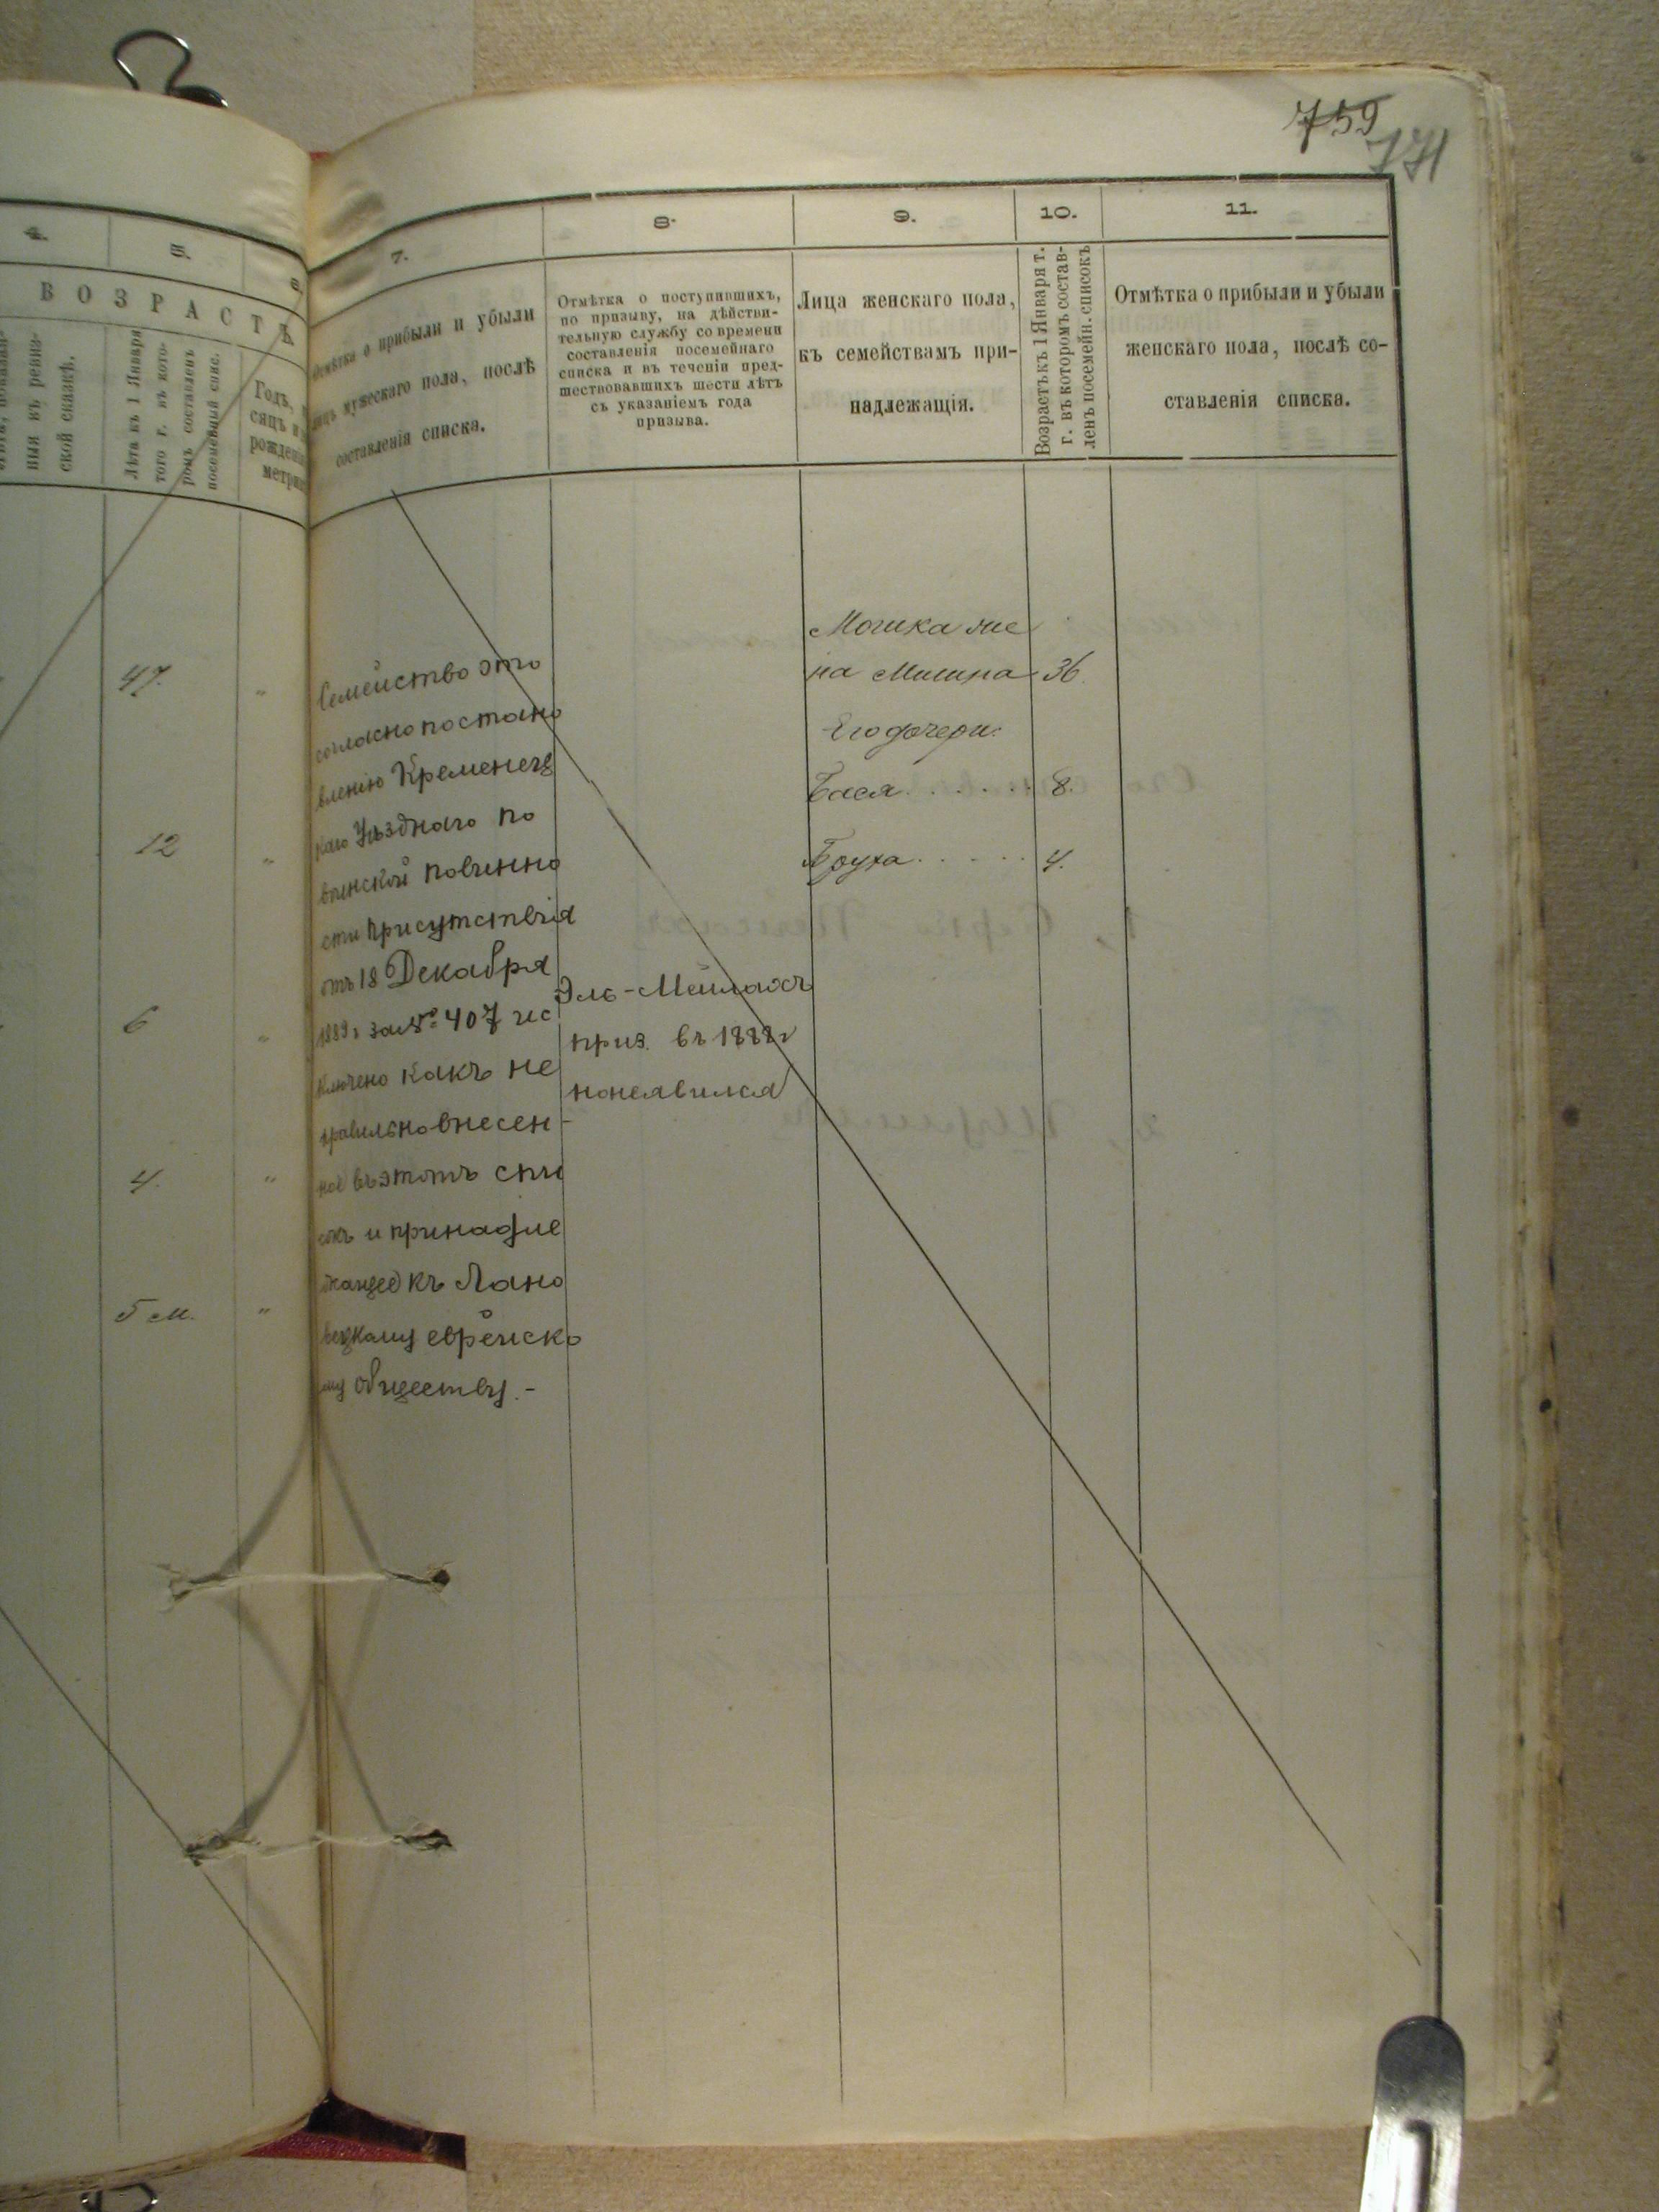 759
171
4.
5.
6.
ВОЗРАСТЪ.
ныя въ ревиз-
ской сказкѣ.
Лѣта къ 1 Января
того г. въ кото-
ромъ составленъ
посемейный спис.
Годъ,
рождені
метри
47.
12
6
4.
5 м.
7.
8.
9.
10.
11.
Отмѣтка о прибыли и убыли
лицъ мужескаго пола, послѣ
составленія списка.
Отмѣтка о поступившихъ,
по призыву, на дѣйстви-
тельную службу со времени
составленія посемейнаго
списка и въ теченіи пред-
шествовавшихъ шести лѣтъ
съ указаніемъ года
призыва.
Лица женскаго пола,
къ семействамъ при-
надлежащія.
Возрастъ къ 1 Января т.
г. въ которомъ состав-
ленъ посемейн. списокъ
Отмѣтка о прибыли и убыли
женскаго пола, послѣ со-
ставленія списка.
Семейство это
согласно постано
влению Кременец
каго Уѣзднаго по
воинской повинно
сти присутствія
отъ 18 Декабря
1889 г за № 407 ис
ключено какъ не
правильно внесен-
ное въ этотъ спи
сокъ и принадле
жащее къ Лано
вецкому еврейско
му обществу.-
Эль-Мейлахъ
приз. въ 1888 г
но неявился
Мошка же
на 36.
Его дочери:
Бася . . . . . 8.
Бруха . . . . . 4.